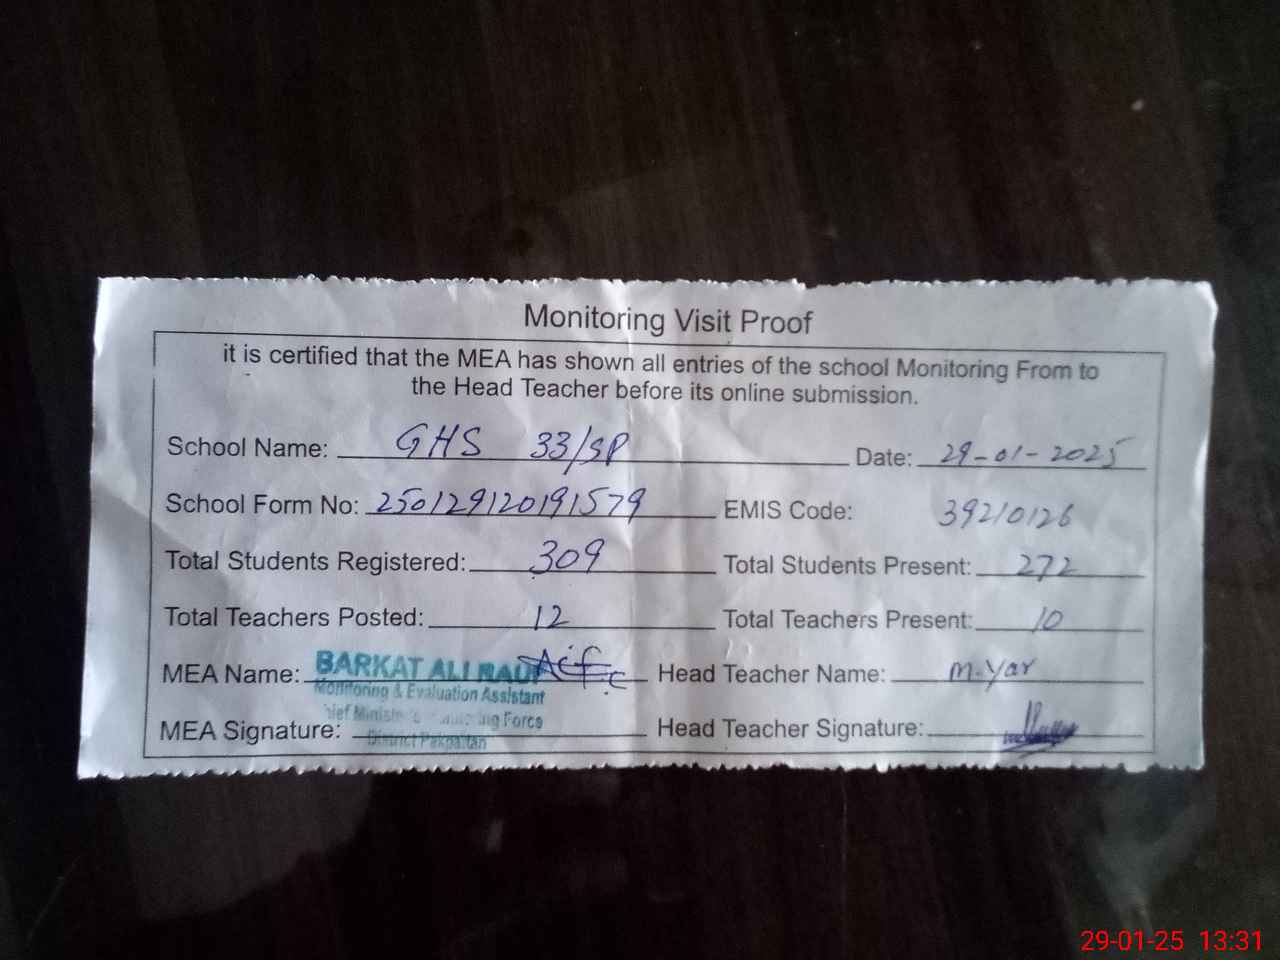 Monitoring Visit Proof
it is certified that the MEA has shown all entries of the school Monitoring From to
the Head Teacher before its online submission.
School Name: GHS 33/SP Date: 29-01-2025
School Form No: 250129120191579 EMIS Code: 39210126
Total Students Registered: 309 Total Students Present: 272
Total Teachers Posted: 12 Total Teachers Present: 10
MEA Name: BARKAT ALI Head Teacher Name: M. Yar
Monitoring & Evaluation Assistant
Force
MEA Signature: Head Teacher Signature:
District Pakpattan
29-01-25 13:31